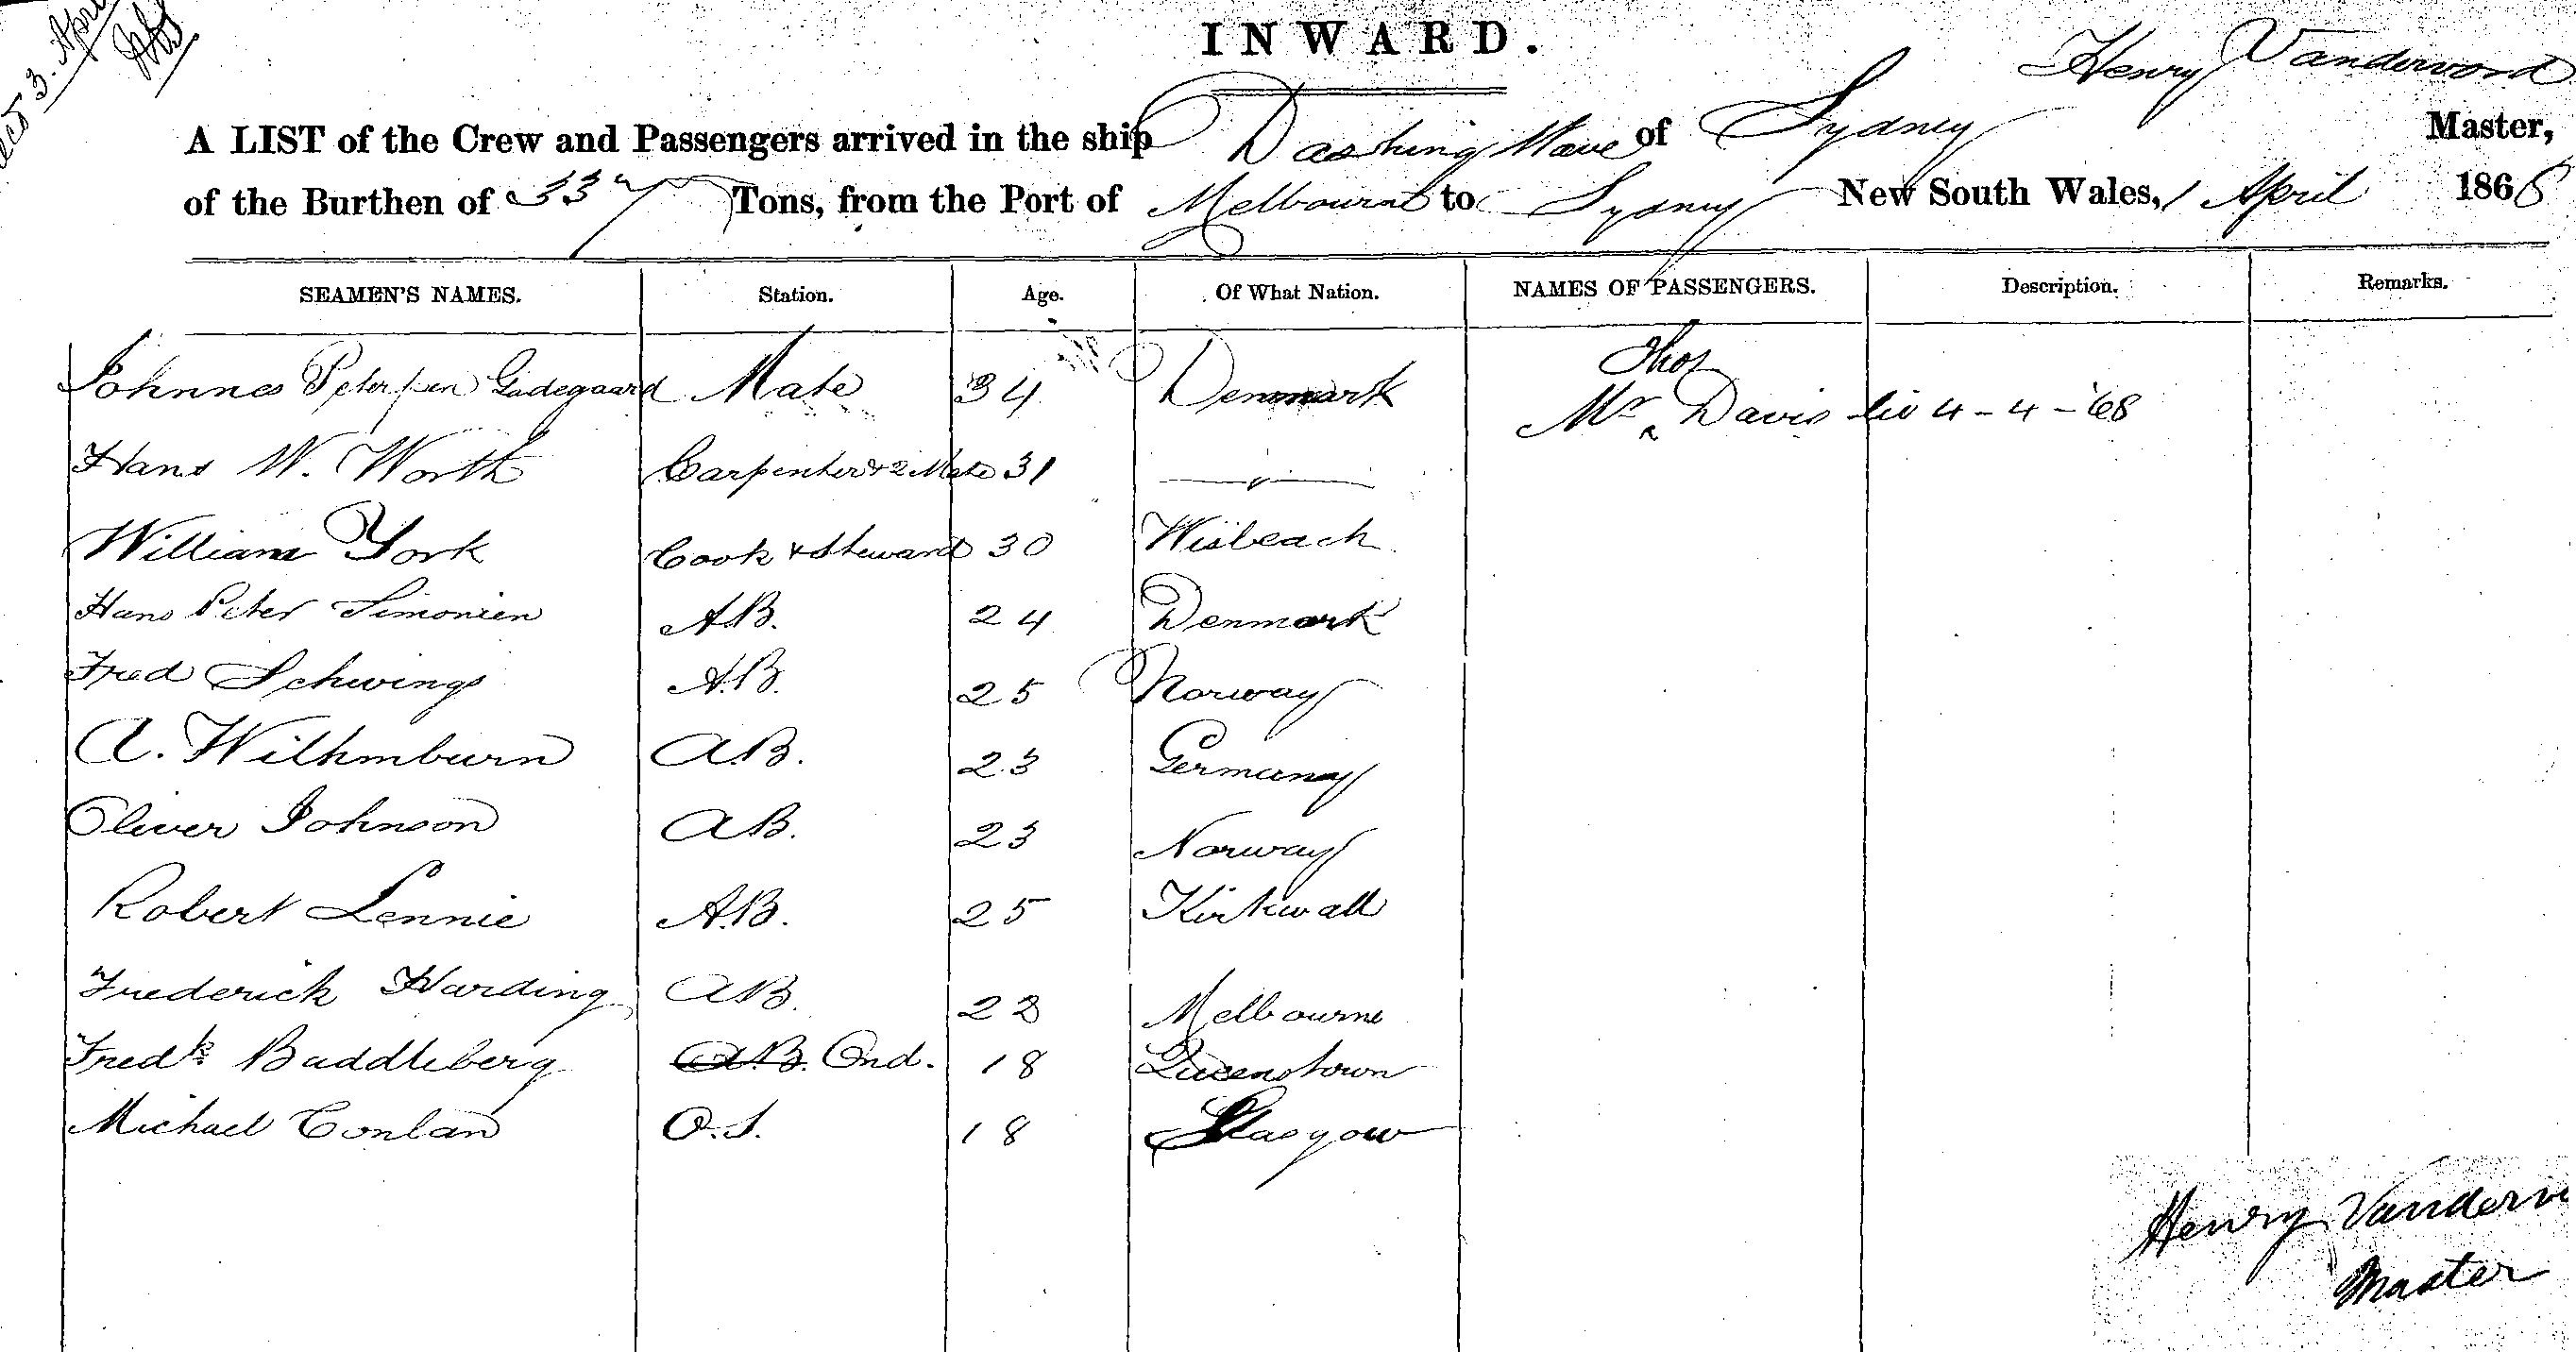 3. April
INWARD.
Henry Vandervord
A LIST of the Crew and Passengers arrived in the ship Dashing Wave of Sydney Master,
of the Burthen of 337 Tons, from the Port of Melbourne to Sydney New South Wales, 1 April 1868
SEAMEN'S NAMES. Station. Age. Of What Nation. NAMES OF PASSENGERS. Description. Remarks.
Thos
Johnnes Peterssen Gudegaard Mate 34 Denmark Mr Davis liv 4-4-'68
Hans W. Worth Carpenter & 2 Mate 31 —"—
William York Cook & Steward 30 Wisbeach
Hans Peter Simonsen A.B. 24 Denmark
Fred Schwings A.B. 25 Norway
A. Wilhmburn A.B. 23 Germany
Oliver Johnson A.B. 23 Norway
Robert Lennie A.B. 25 Kirkwall
Frederick Harding A.B. 22 Melbourne
Fredk Buddleberg A.B. Ond. 18 Queenstown
Michael Conlan O.S. 18 Glasgow
Henry Vanderv
Master